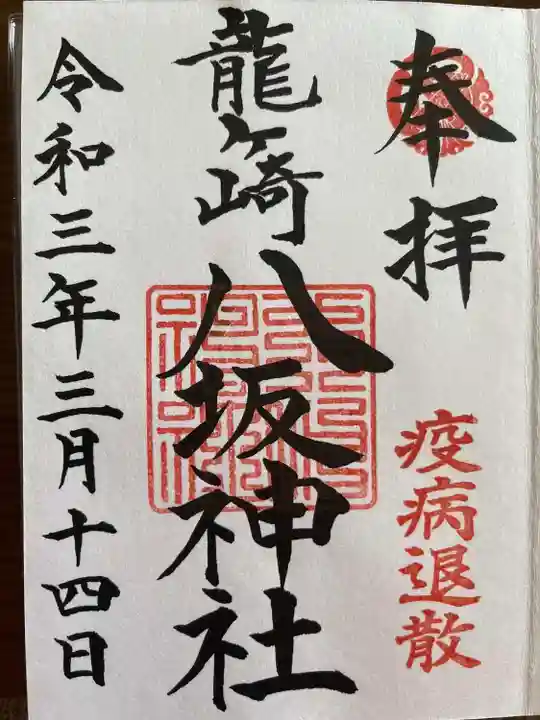 奉拝
疫病退散
龍ヶ崎
八坂神社
令和三年三月十四日